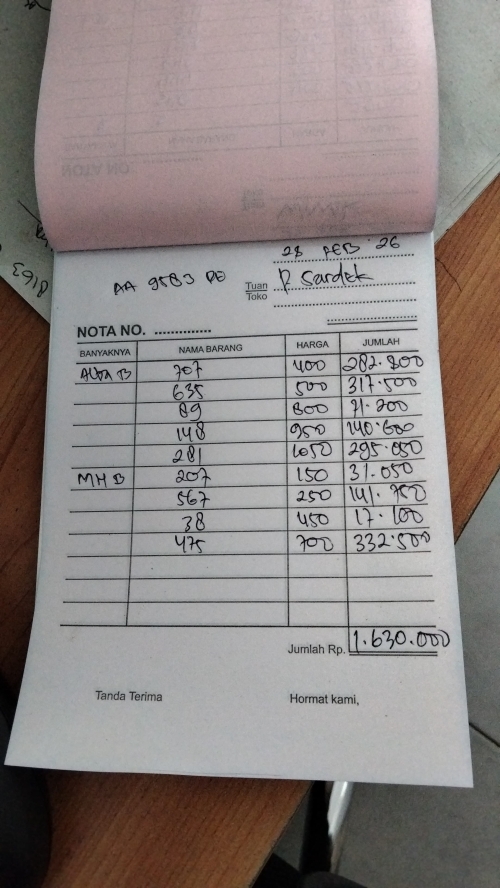 28 FEB '26
AA 9583 PE
Tuan
Toko
P Sardek
NOTA NO. ..............
BANYAKNYA NAMA BARANG HARGA JUMLAH
ALBA B 707 400 282.800
635 500 317.500
89 800 71.200
148 950 140.600
281 1050 295.050
MH B 207 150 31.050
567 250 141.750
38 450 17.100
475 700 332.500
Jumlah Rp. 1.630.000
Tanda Terima Hormat kami,
8163